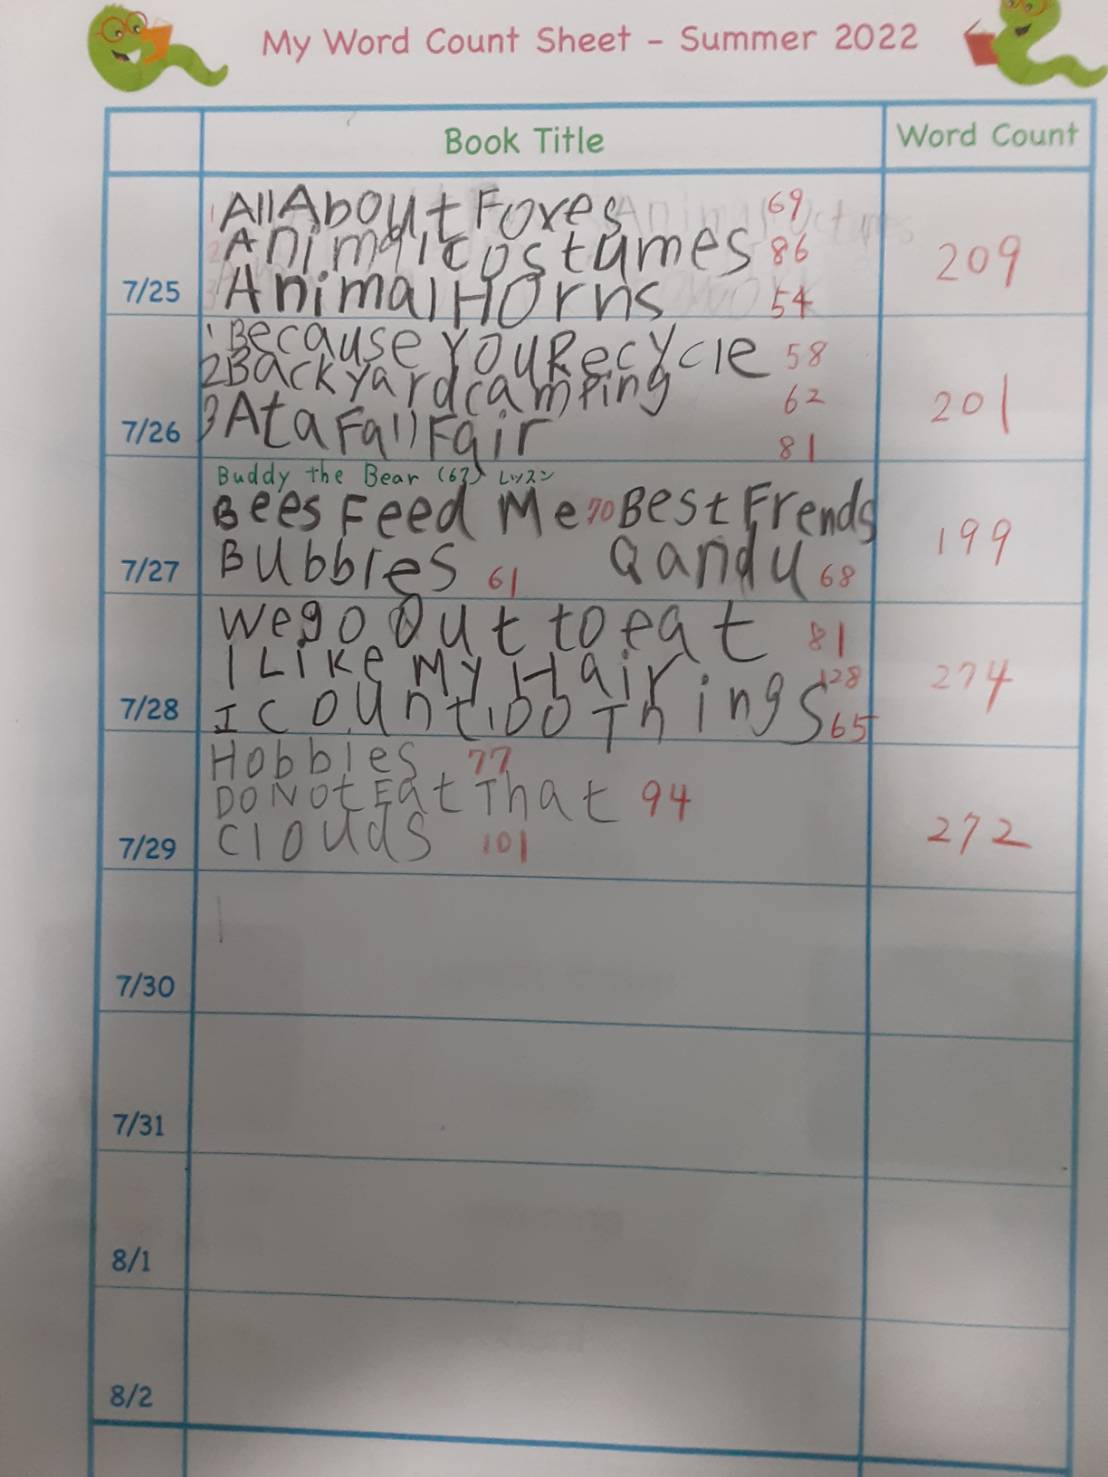 My Word Count Sheet - Summer 2022
Book Title Word Count
1 All About Foxes 69
Animal Costumes 86
7/25 Animal Horns 54 209
1 Because You Recycle 58
2 Backyard camping 62
7/26 3 At a Fall Fair 81 201
Buddy the Bear (67) レッスン
Bees Feed Me 70 Best Frends
7/27 Bubbles 61 Q and U 68 199
We go Out to eat 81
I Like My Hair 128
7/28 I Count 100 Things 65 274
Hobbies 77
Do Not Eat That 94
7/29 Clouds 101 272
7/30
7/31
8/1
8/2